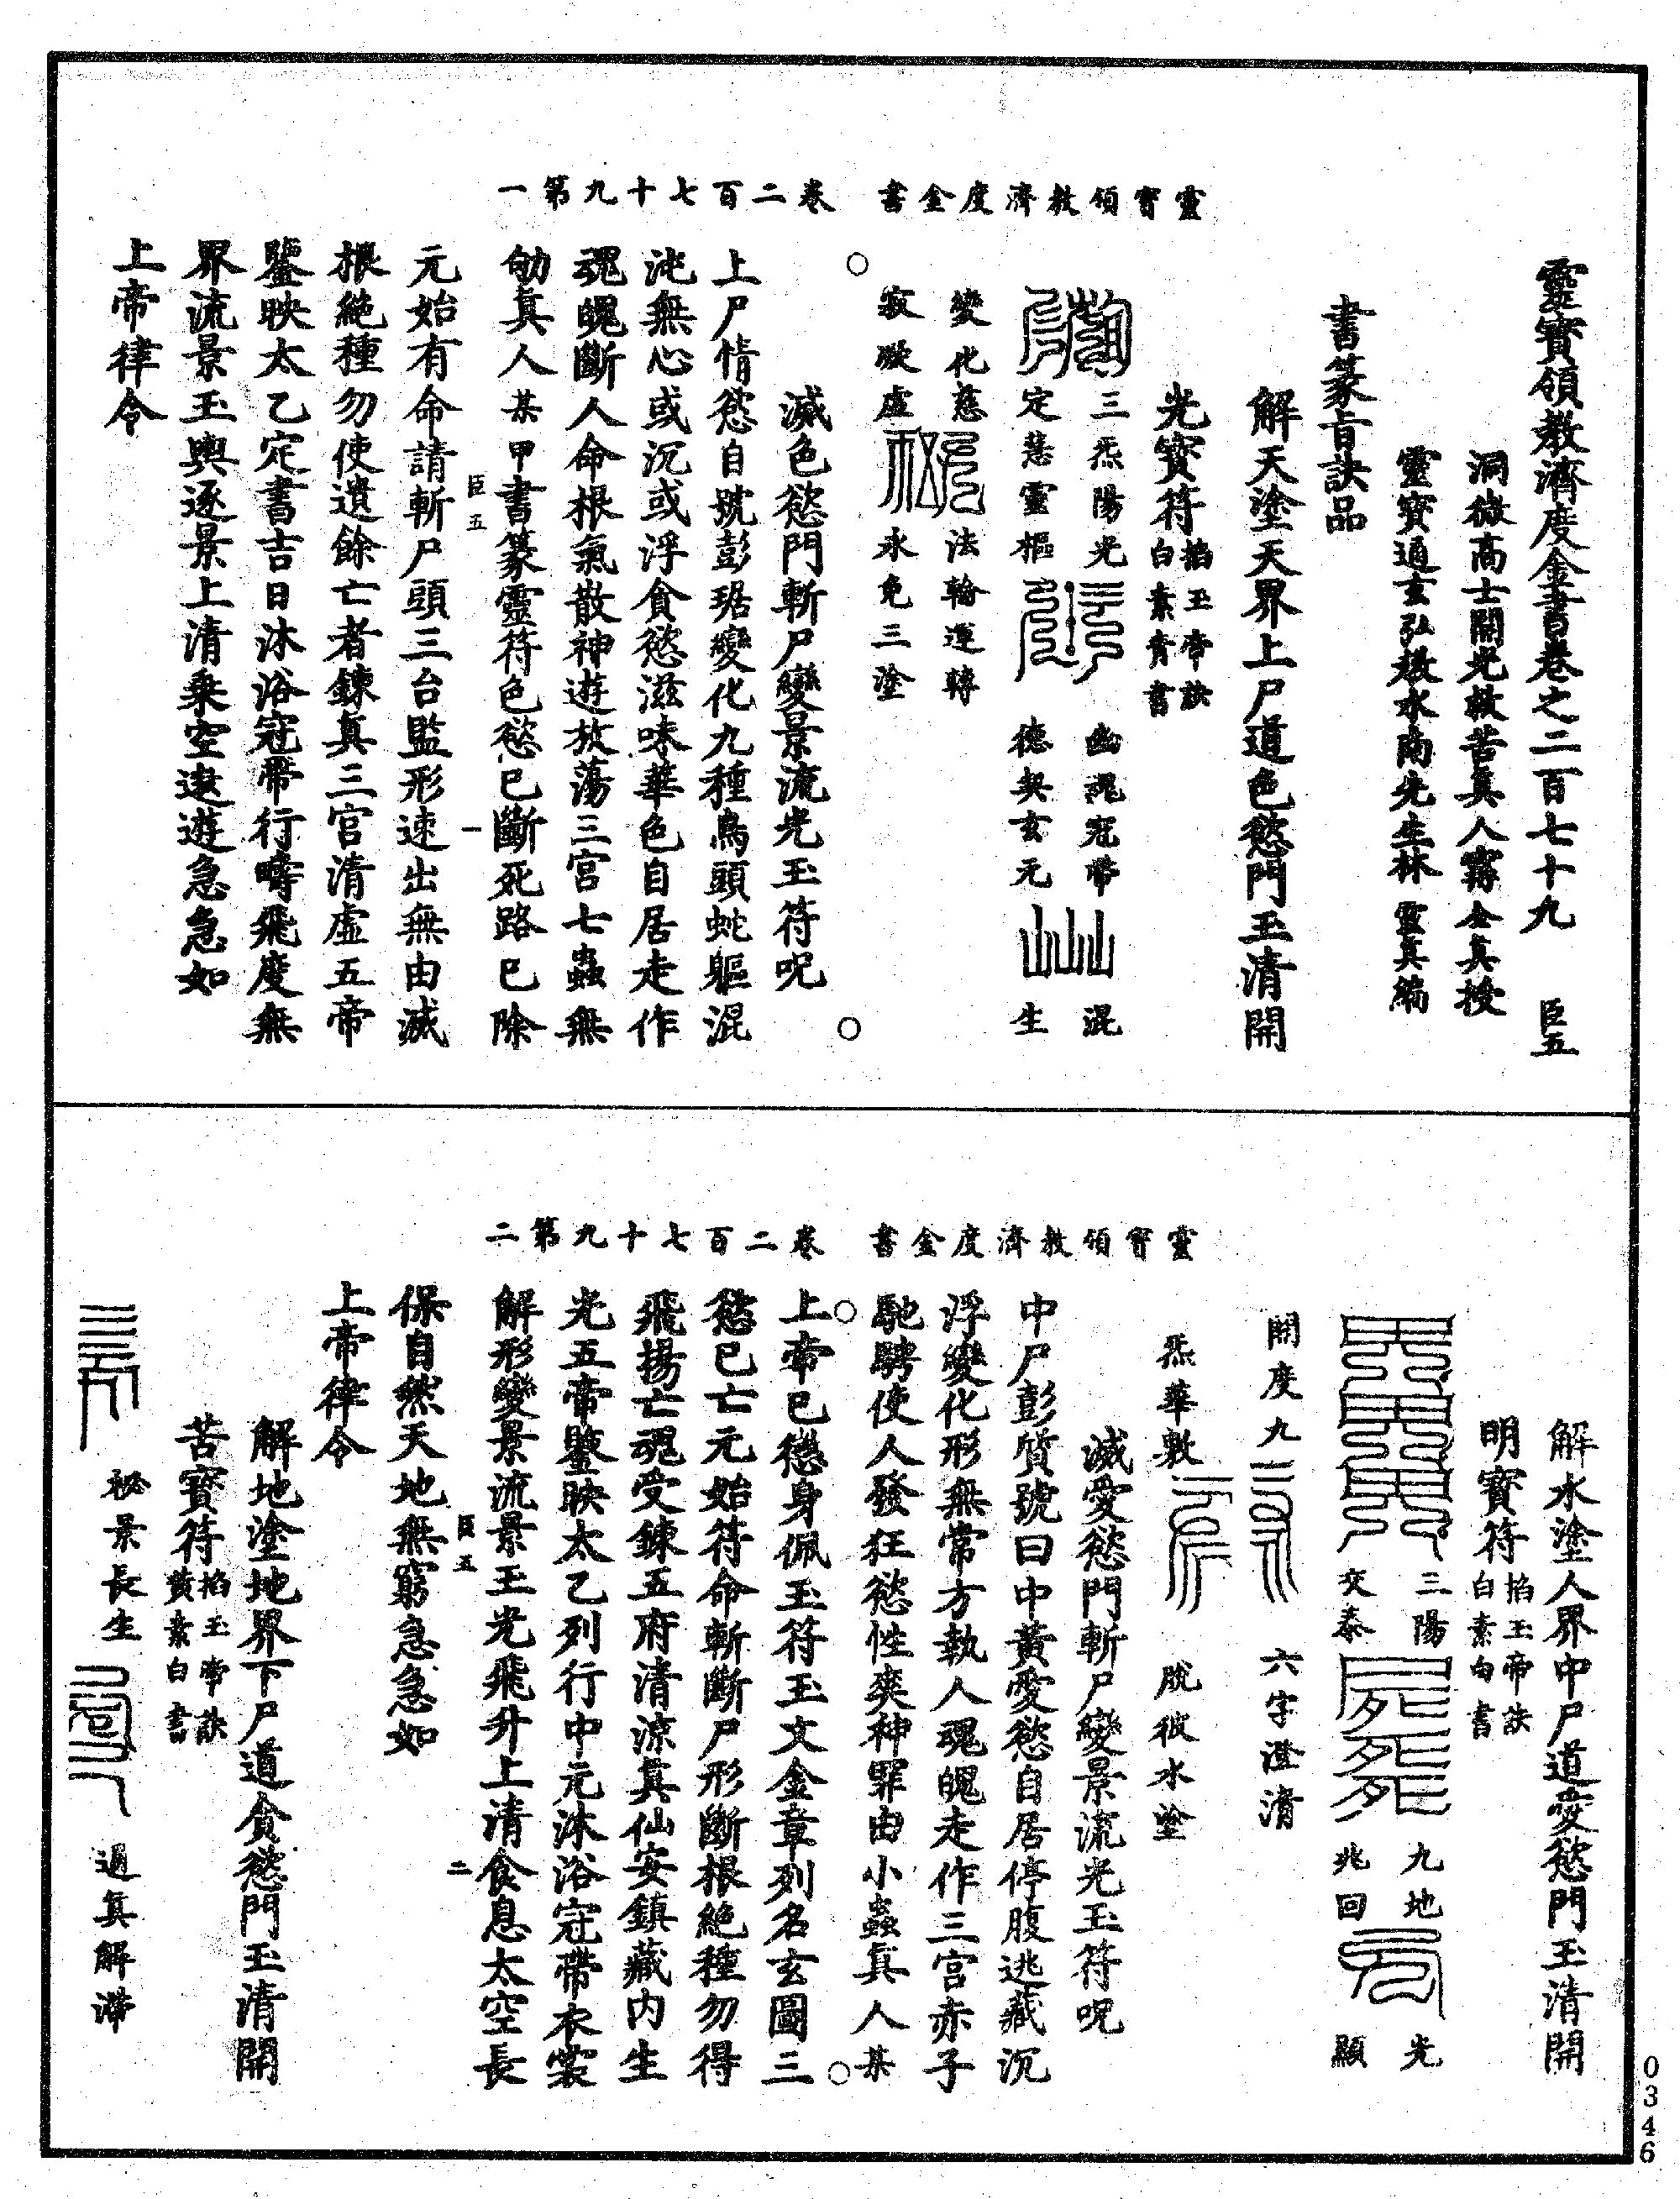 靈寶領教濟度金書卷之二百七十九　臣五
洞微高士開光救苦真人甯全真授
靈寶通玄弘教水南先生林靈真編
書篆旨訣品
解天塗天界上尸道色慾門玉清開
光寶符掐玉帝訣白素青書
三炁陽光　幽魂冠帶　混
定慧靈樞　德契玄元　生
變化慈　法輪運轉
寂歘虛　永免三塗
靈寶領教濟度金書　卷二百七十九第一
滅色慾門斬尸變景流光玉符呪
上尸情慾自號彭琚變化九種鳥頭蛇軀混
沌無心或沉或浮貪慾滋味華色自居走作
魂魄斷人命根氣散神遊放蕩三宮七蟲無
劬真人某甲書篆靈符色慾已斷死路已除
臣五　一
元始有命請斬尸頭三台監形速出無由滅
根絕種勿使遺餘亡者鍊真三官清虛五帝
鑒映太乙定書吉日沐浴冠帶行疇飛度無
界流景玉輿逐景上清乘空遨遊急急如
上帝律令
解水塗人界中尸道愛慾門玉清開
明寶符掐玉帝訣白素白書
三陽　九地　光
交泰　兆回　顯
開度九　六字澄清
炁華敷　脫彼水塗
滅愛慾門斬尸變景流光玉符呪
中尸彭質號曰中黃愛慾自居停腹逃藏沉
浮變化形無常方執人魂魄走作三宮赤子
馳騁使人發狂慾性爽神罪由小蟲真人某
靈寶領教濟度金書　卷二百七十九第二
上帝已德身佩玉符玉文金章列名玄圖三
慾已亡元始符命斬斷尸形斷根絕種勿得
飛揚亡魂受鍊五府清涼真仙安鎮藏內生
光五帝鑒映太乙列行中元沐浴冠帶衣裳
解形變景流景玉光飛升上清食息太空長
臣五　二
保自然天地無窮急急如
上帝律令
解地塗地界下尸道貪慾門玉清開
苦寶符掐玉帝訣黃素白書
祕景長生　過真解滯
0346